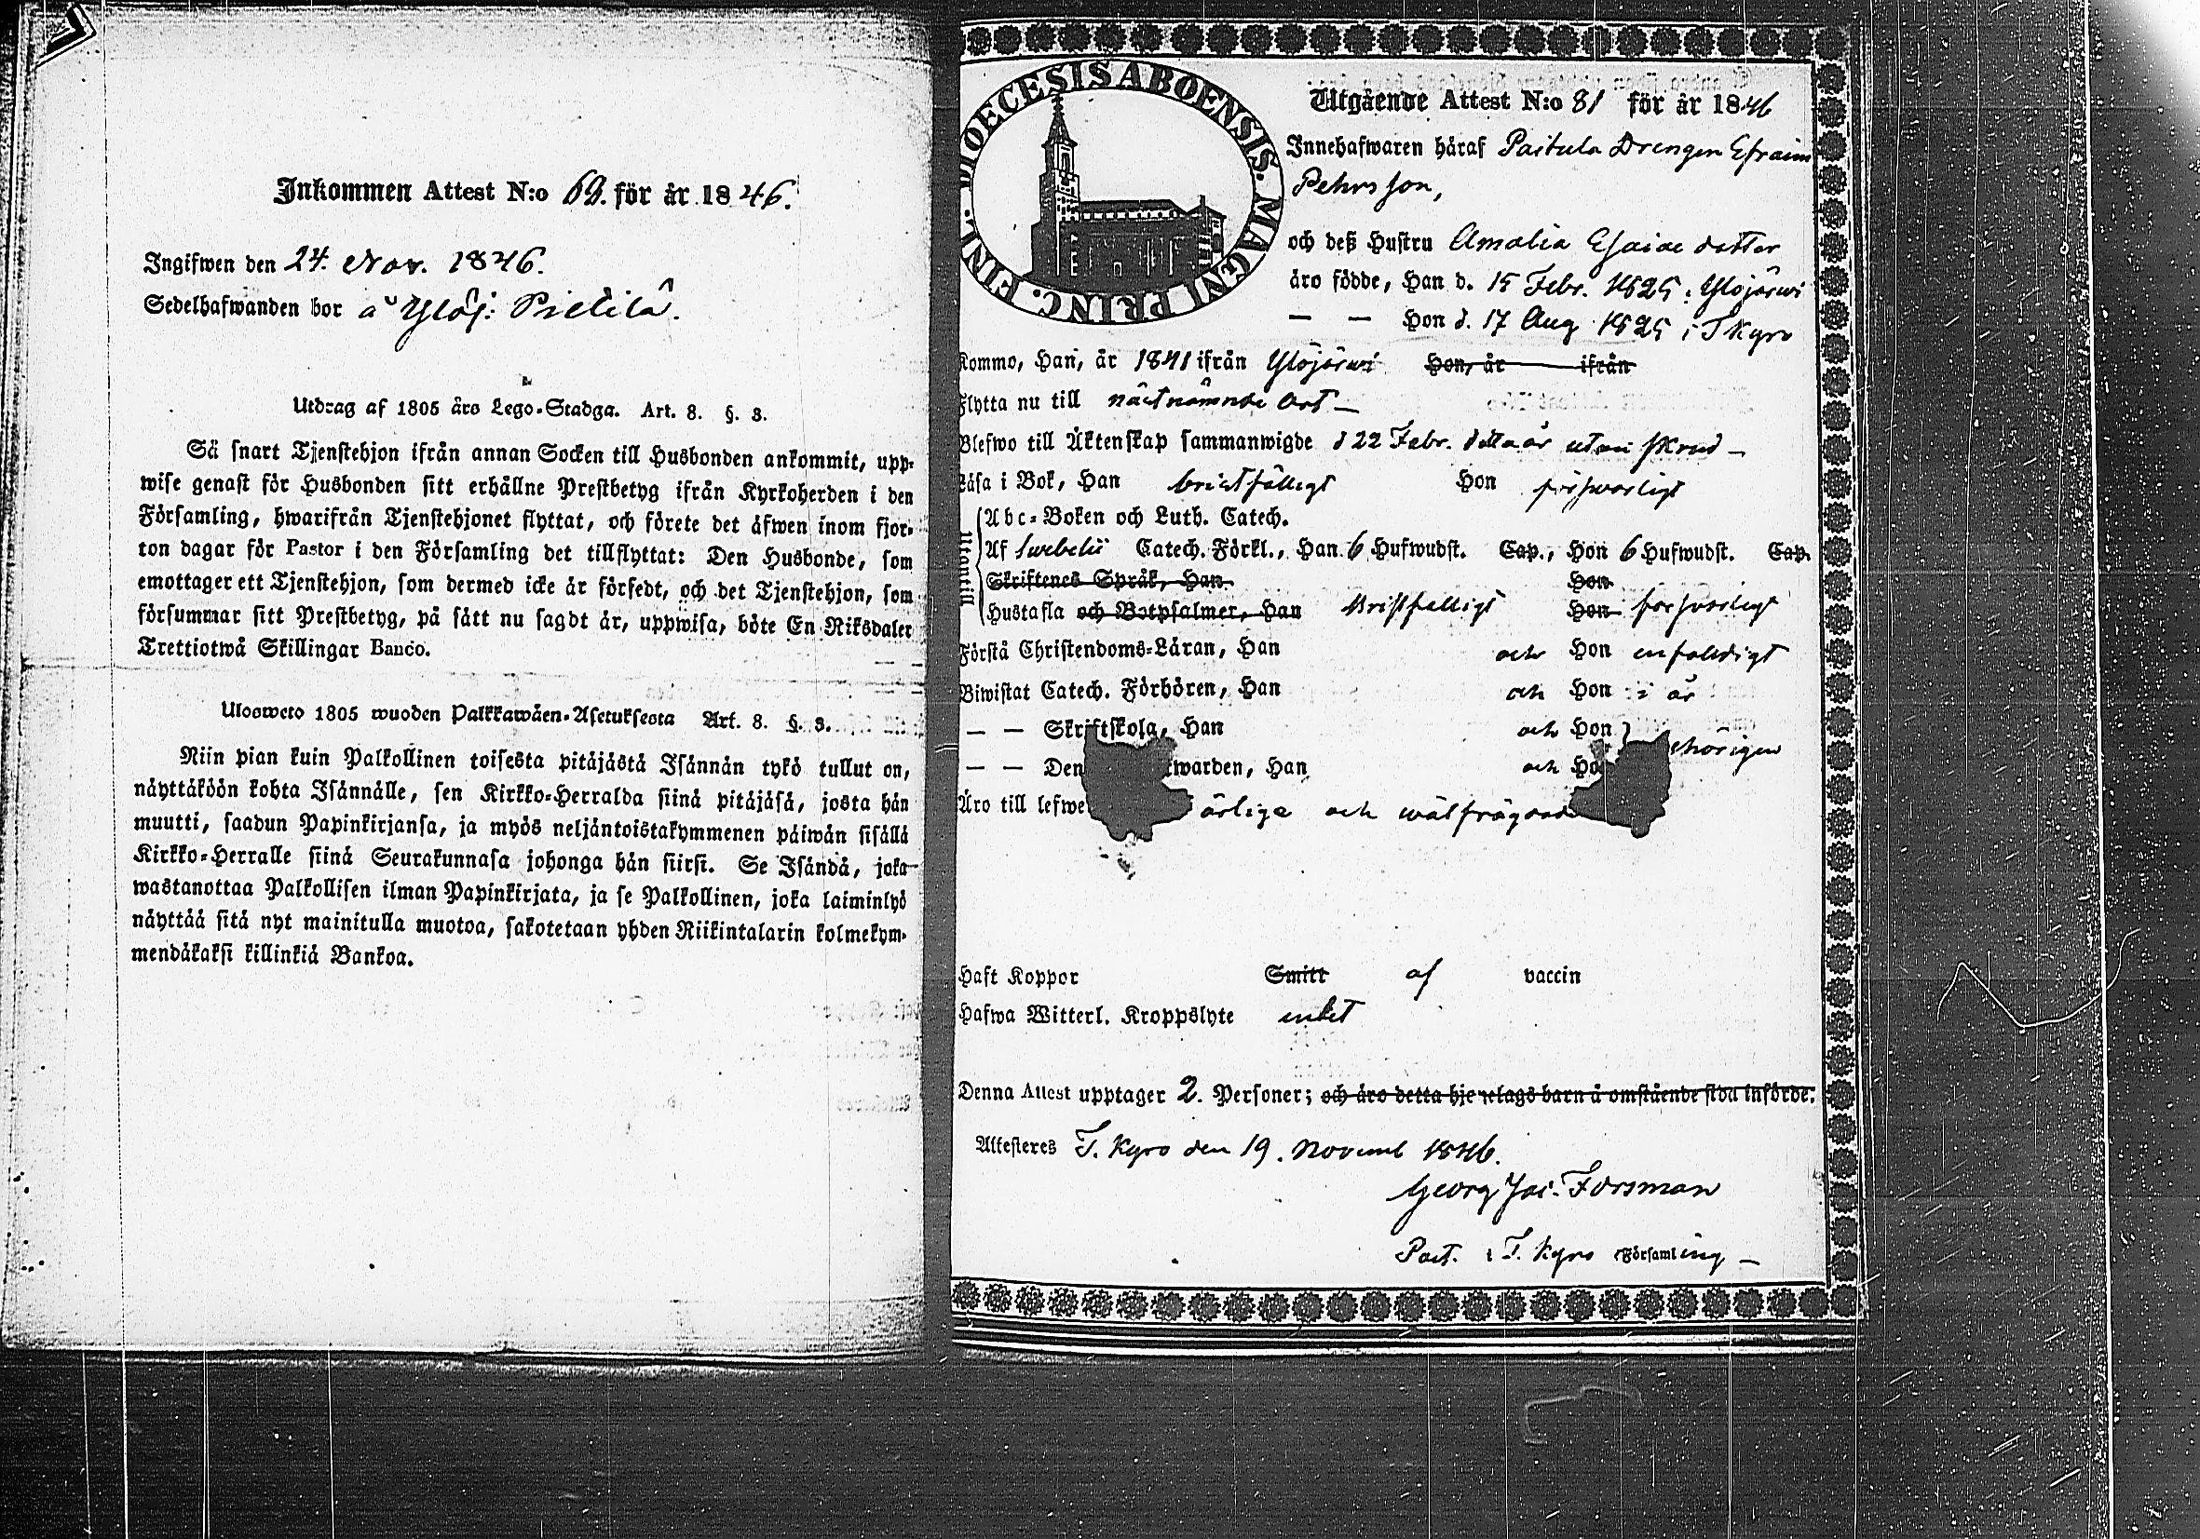 Inkommen Attest N:o 69. för år 1846.
Ingifwen den 24. Nov. 1846.
Sedelhafwanden bor å Ylöj: Pietilä.
Utdrag af 1805 års Lego-Stadga. Art. 8. §. 3.
Så snart Tjenstehjon ifrån annan Socken till Husbonden ankommit, upp-
wise genast för Husbonden sitt erhållne Prestbetyg ifrån Kyrkoherden i den
Församling, hwarifrån Tjenstehjonet flyttat, och förete det äfwen inom fjor-
ton dagar för Pastor i den Församling det tillflyttat: Den Husbonde, som
emottager ett Tjenstehjon, som dermed icke är försedt, och det Tjenstehjon, som
försummar sitt Prestbetyg, på sätt nu sagdt är, uppwisa, böte En Riksdaler
Trettiotwå Skillingar Banco.
Ulosweto 1805 wuoden Palkkawäen-Asetuksesta Art. 8. §. 3.
Niin pian kuin Palkollinen toisesta pitäjästä Isännän tykö tullut on,
näyttäköön kohta Isännälle, sen Kirkko-Herralda siinä pitäjäsä, josta hän
muutti, saadun Papinkirjansa, ja myös neljäntoistakymmenen päiwän sisällä
Kirkko-Herralle siinä Seurakunnasa johonga hän siirsi. Se Isändä, joka
wastanottaa Palkollisen ilman Papinkirjata, ja se Palkollinen, joka laiminlyö
näyttää sitä nyt mainitulla muotoa, sakotetaan yhden Riikintalarin kolmekym-
mendäkaksi killinkiä Bankoa.
DIOECESIS ABOENSIS. MAGNI PRINC. FINL.
Utgående Attest N:o 81 för år 1846
Innehafwaren häraf Paitula Drengen Efraim
Pehrsson,
och deß Hustru Amalia Esaiae dotter
äro födde, Han d. 15 Febr. 1825 i Ylöjärwi
— — Hon d. 17 Aug 1825 i T Kyro
Kommo, Han, år 1841 ifrån Ylöjärwi Hon, år ifrån
Flytta nu till nästnämnde Ort —
Blefwo till Äktenskap sammanwigde d 22 Febr. detta år utan skrud —
Läsa i Bok, Han bristfälligt Hon förswarligt
Utantill
Abc-Boken och Luth. Catech.
Af Swebelii Catech. Förkl., Han 6 Hufwudst. Cap., Hon 6 Hufwudst. Cap.
Skriftenes Språk, Han Hon
Hustafla och Botpsalmer, Han Bristfälligt Hon förswarligt
Förstå Christendoms-Läran, Han och Hon enfaldigt
Biwistat Catech. Förhören, Han och Hon i år
— — Skriftskola, Han och Hon
— — Den warden, Han och Ho ehörigen
Äro till lefwe ärlige och wälfrägdade
Haft Koppor Smitt af vaccin
Hafwa Witterl. Kroppslyte intet
Denna Attest upptager 2. Personer; och äro detta hjonelags barn å omstående sida införde.
Attesteres T. Kyro den 19. Novemb 1846.
Georg Jac. Forsman
Past. i T. Kyro Församling —